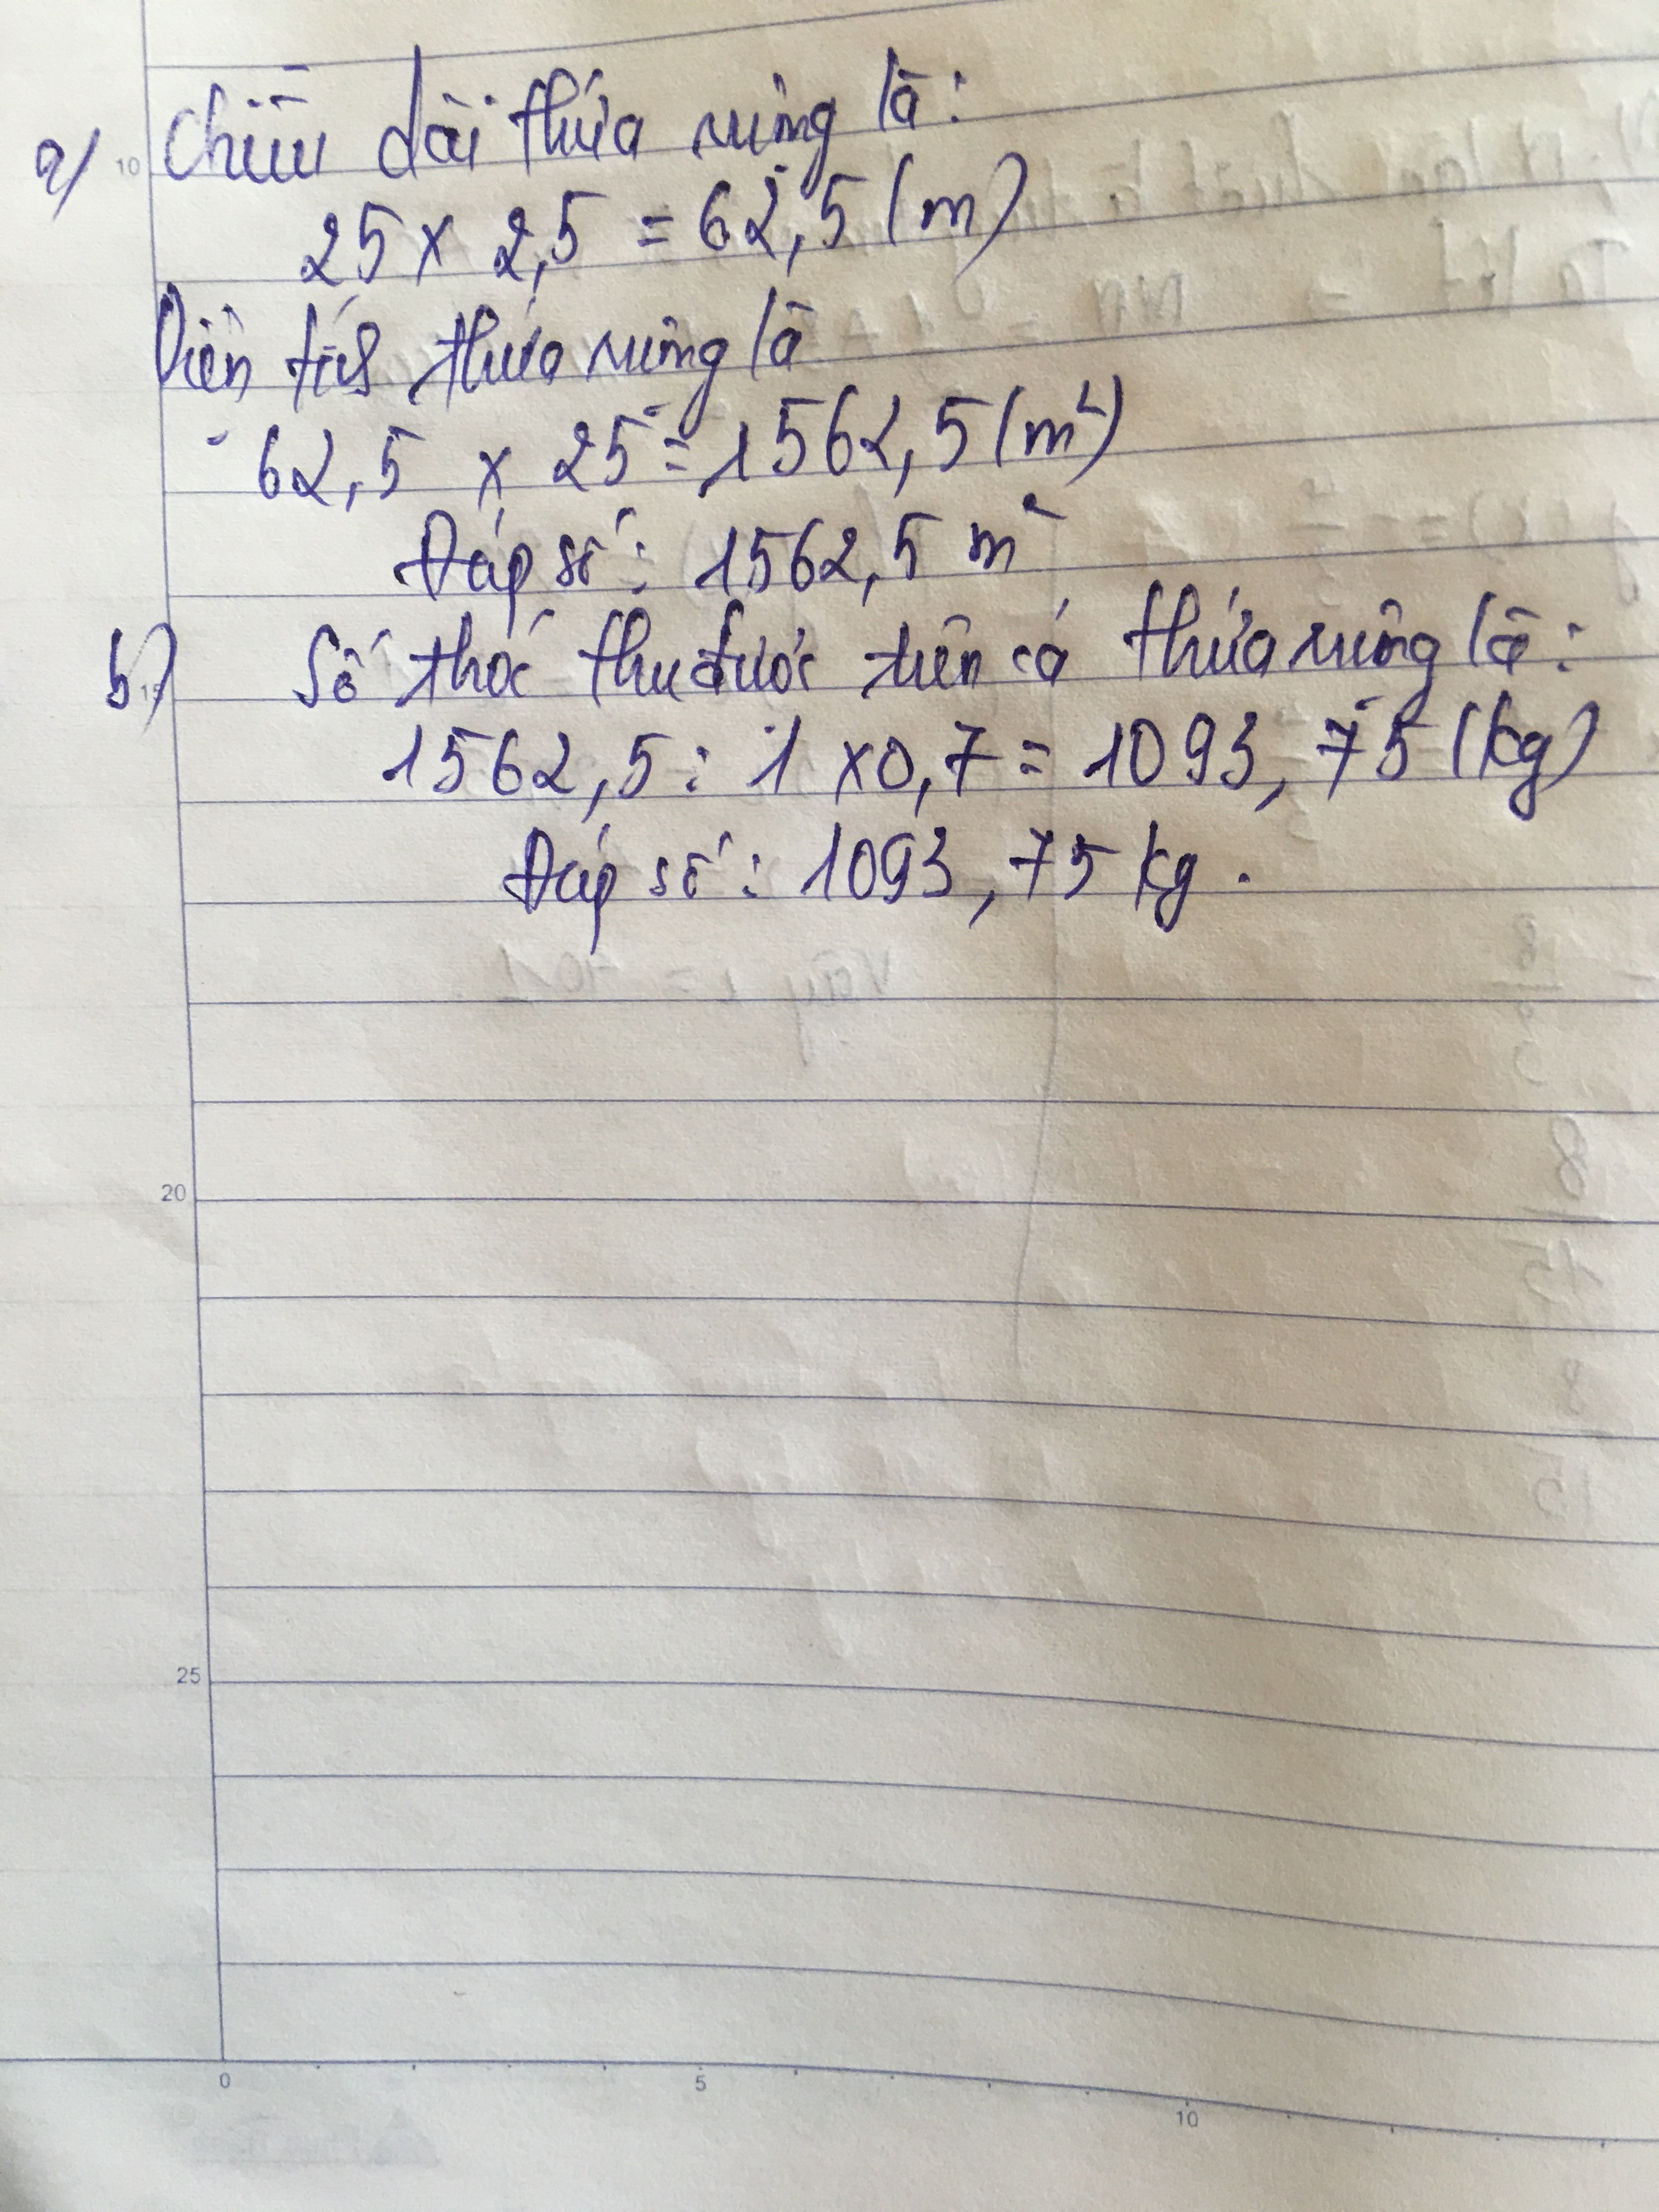 a) Chiều dài thửa ruộng là:
25 x 2,5 = 62,5 (m)
Diện tích thửa ruộng là
62,5 x 25 = 1562,5 (m²)
Đáp số: 1562,5 m²
b) Số thóc thu được trên cả thửa ruộng là:
1562,5 : 1 x 0,7 = 1093,75 (kg)
Đáp số: 1093,75 kg.
10
15
20
25
0 5 10